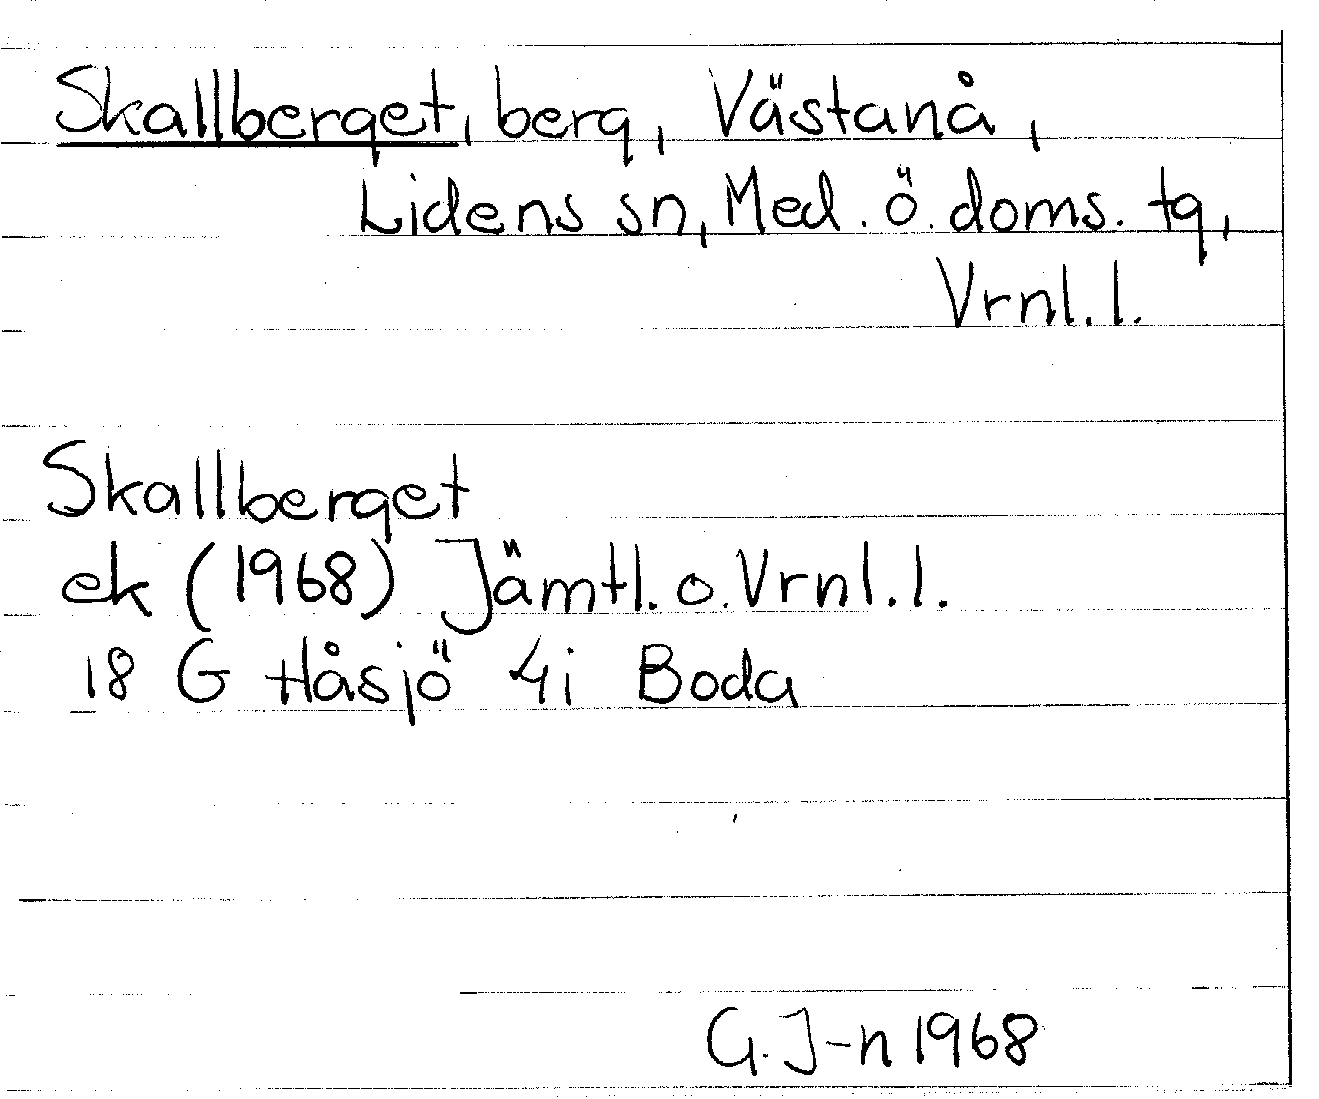 Skallberget, berg, Västanå,
Lidens sn, Med. ö. doms. tg,
Vrnl. l.
Skallberget
ek (1968) Jämtl. o. Vrnl. l.
18 G Håsjö 4i Boda
G. J-n 1968